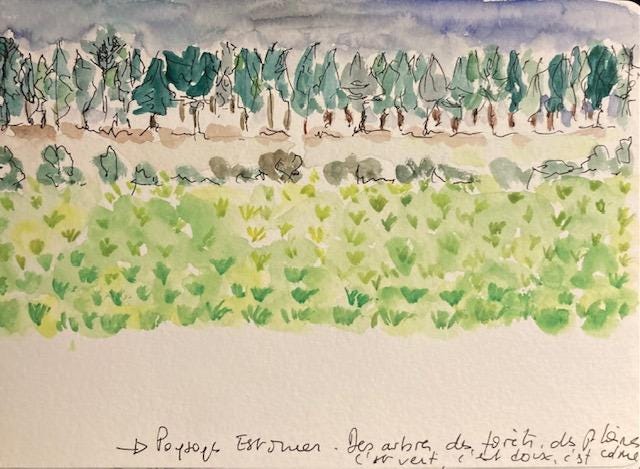 → Paysage Estonien. Des arbres, des forêts, des plaines
c'est vert, c'est doux, c'est calme